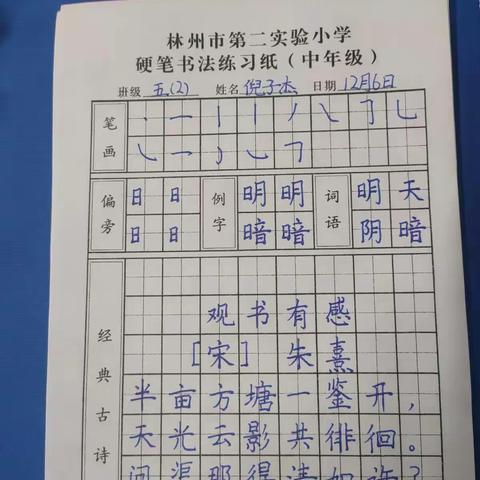 林州市第二实验小学
硬笔书法练习纸（中年级）
班级 五.(2) 姓名 倪子杰 日期 12月6日
笔画
偏旁 日 日 例字 明 明 词语 明 天
日 日 暗 暗 阴 暗
经典古诗
观书有感
[宋] 朱熹
半亩方塘一鉴开，
天光云影共徘徊。
问渠那得清如许？